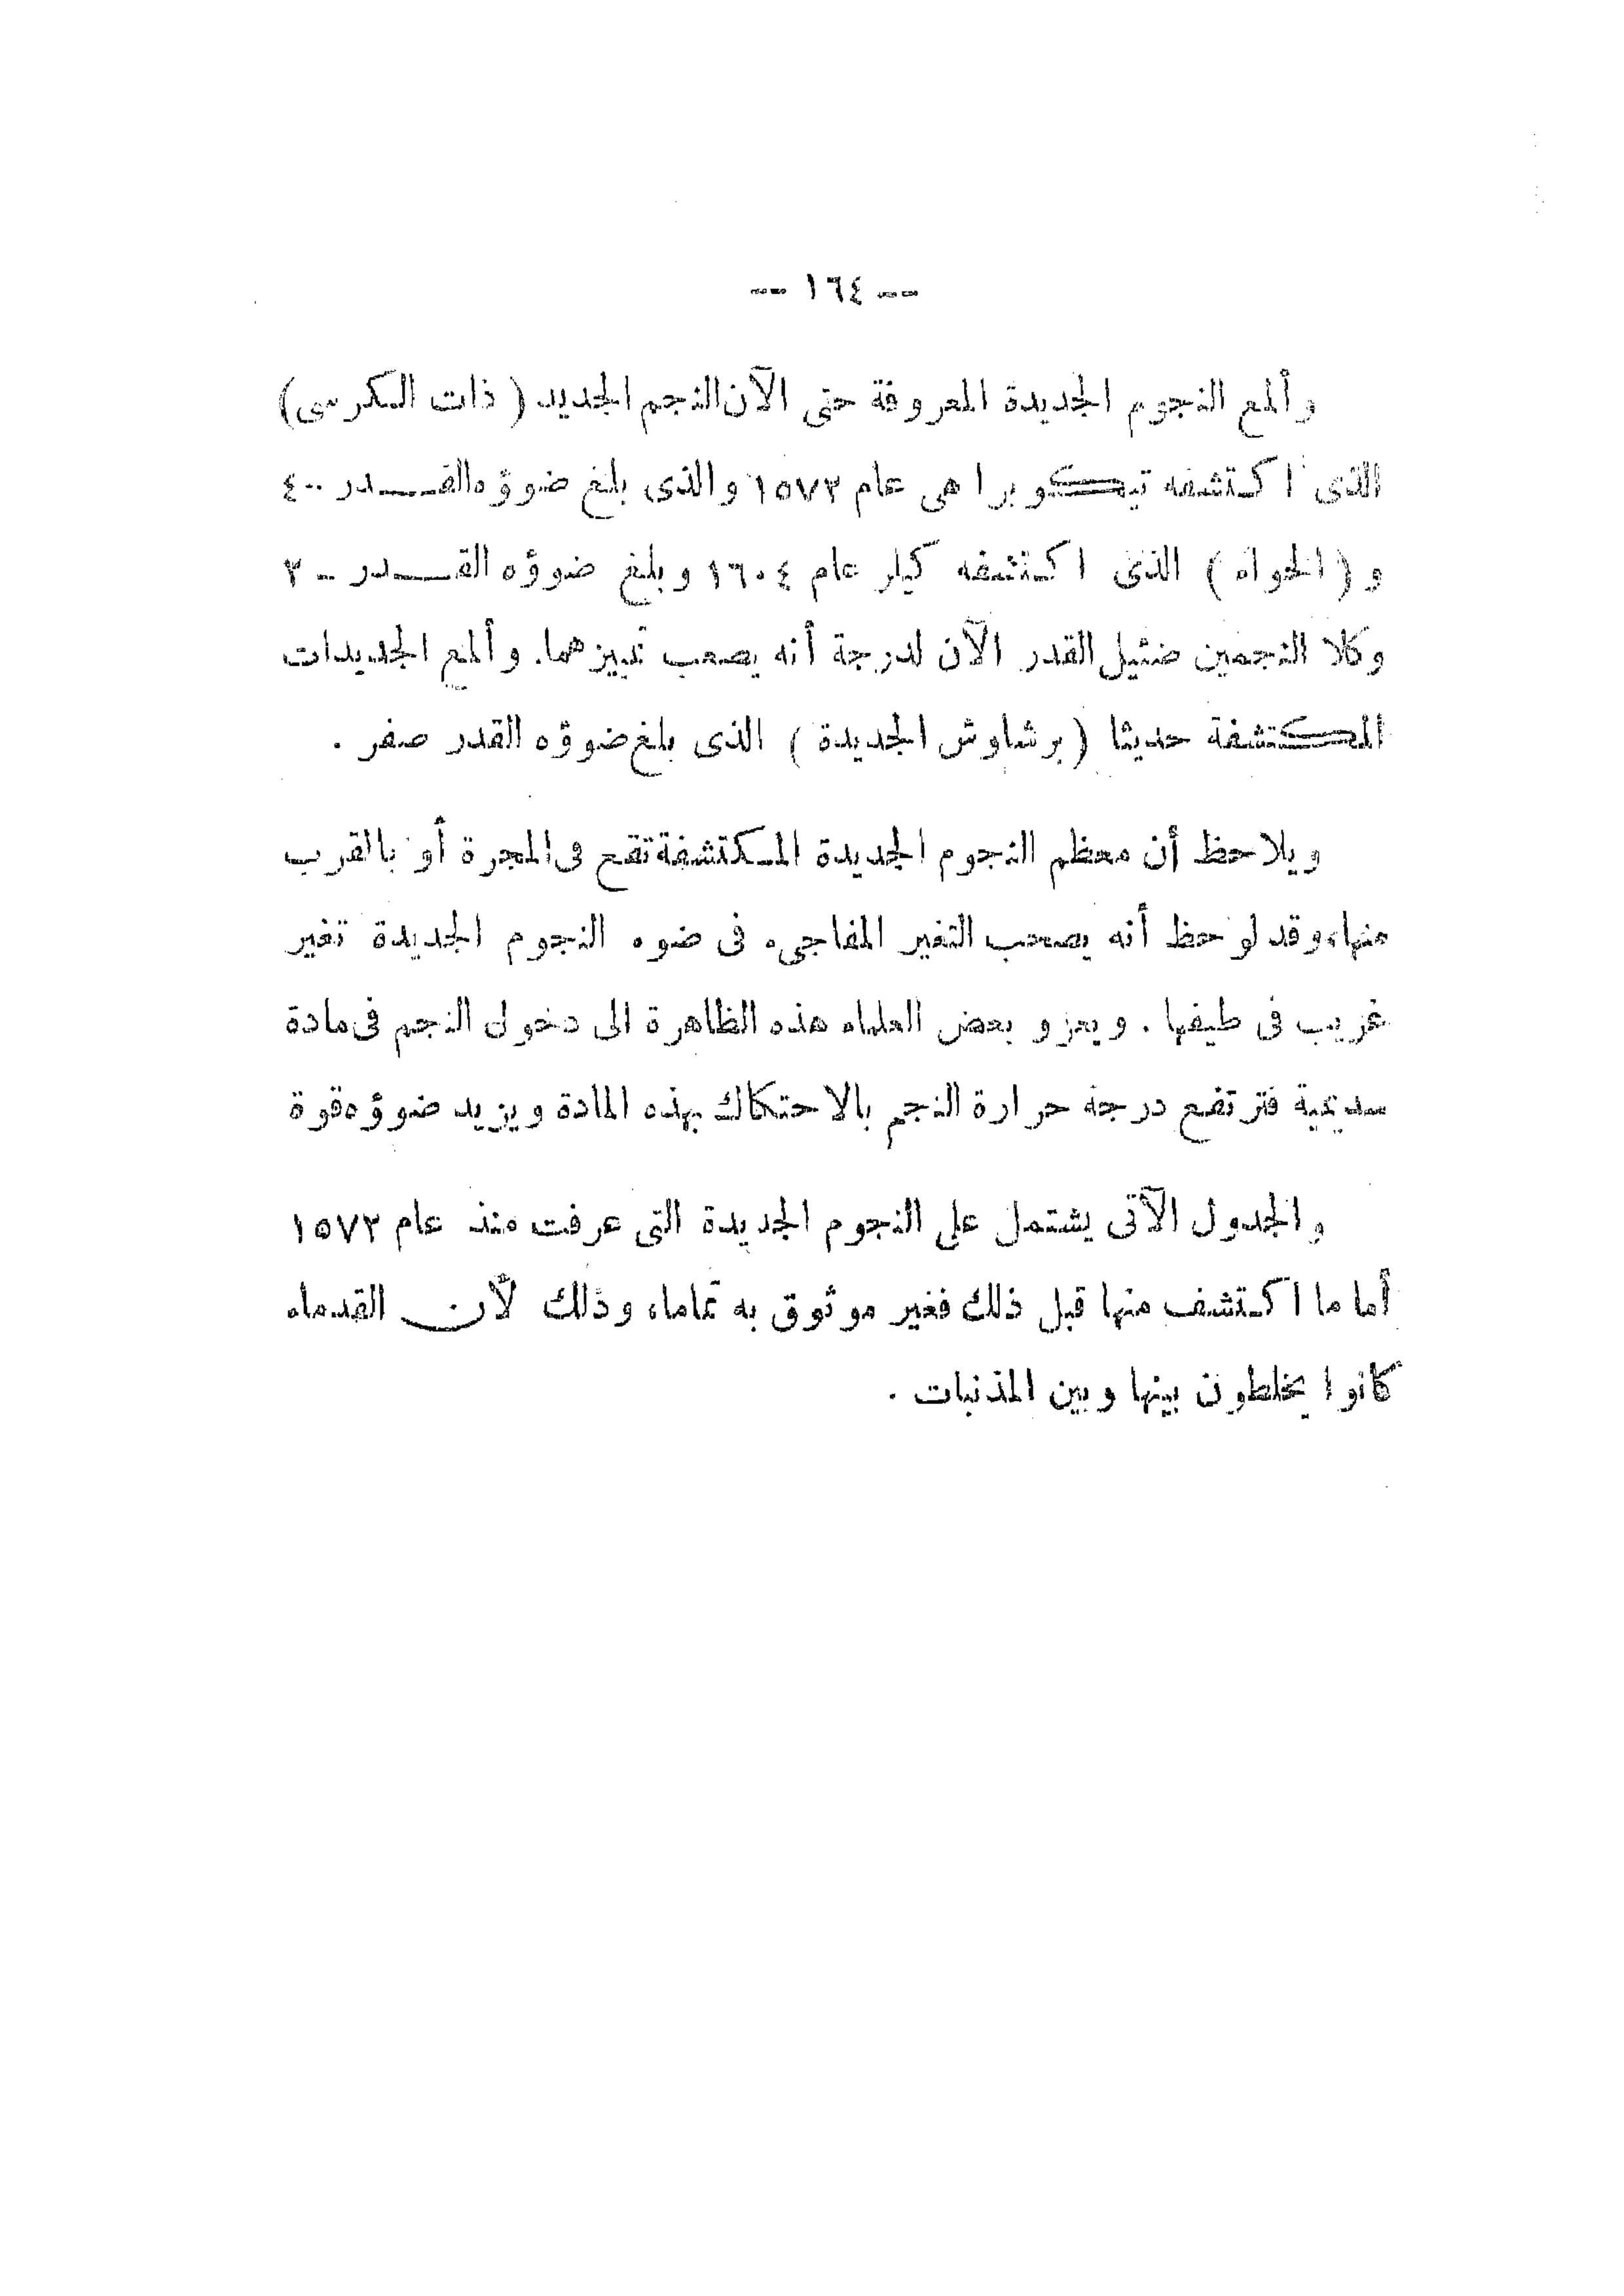 -- ١٦٤ --
وألمع النجوم الجديدة المعروفة حتى الآن النجم الجديد ( ذات الكرسى)
الذى اكتشفه تيكو براهى عام ١٥٧٣ والذى بلغ ضوؤه القدر -٤
و ( الحواء ) الذى اكتشفه كبلر عام ١٦٠٤ وبلغ ضوؤه القدر -٢
وكلا النجمين ضئيل القدر الآن لدرجة أنه يصعب تمييزهما. وألمع الجديدات
المكتشفة حديثا ( برشاوش الجديدة ) الذى بلغ ضوؤه القدر صفر .
ويلاحظ أن معظم النجوم الجديدة المكتشفة تقع فى المجرة أو بالقرب
منها، وقد لوحظ أنه يصحب التغير المفاجىء فى ضوء النجوم الجديدة تغير
غريب فى طيفها . ويعزو بعض العلماء هذه الظاهرة الى دخول النجم فى مادة
سديمية فترتفع درجة حرارة النجم بالاحتكاك بهذه المادة ويزيد ضوؤه قوة
والجدول الآتى يشتمل على النجوم الجديدة التى عرفت منذ عام ١٥٧٣
أما ما اكتشف منها قبل ذلك فغير موثوق به تماما، وذلك لأن القدماء
كانوا يخلطون بينها وبين المذنبات .